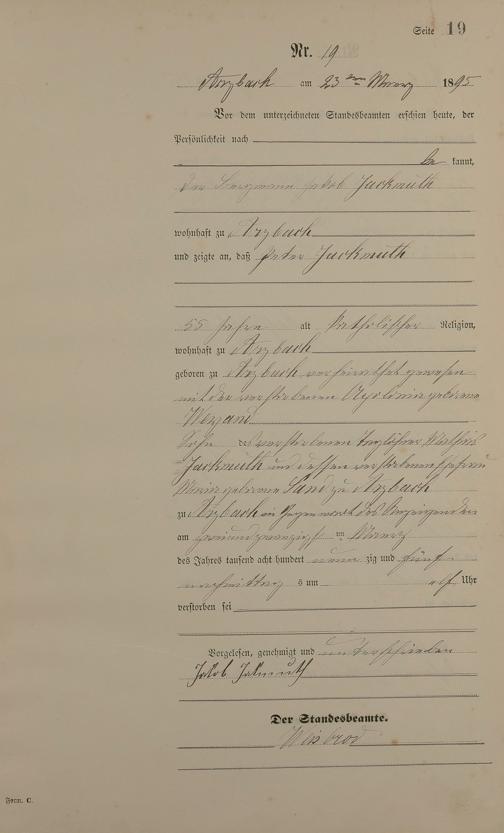 Seite 19
Nr. 19
Arzbach am 23ten Maerz 1895
Vor dem unterzeichneten Standesbeamten erschien heute, der
Persönlichkeit nach
be kannt,
der Bergmann Jakob Jackmuth
wohnhaft zu Arzbach
und zeigte an, daß Peter Jackmuth
55 Jahre alt katholischer Religion,
wohnhaft zu Arzbach
geboren zu Arzbach verheirathet gewesen
mit der verstorbenen Apolonia geborene
Weyand
Sohn des verstorbenen Taglöhner Mathias
Jackmuth und dessen verstorbenen Ehefrau
Maria geborene Land zu Arzbach
zu Arzbach in Gegenwart des Anzeigenden
am zweiundzwanzigst en Maerz
des Jahres tausend acht hundert neun zig und fünf
nachmittag s um elf Uhr
verstorben sei
Vorgelesen, genehmigt und unterschrieben
Jakob Jakmuth
Der Standesbeamte.
Weisbrod
Form. C.